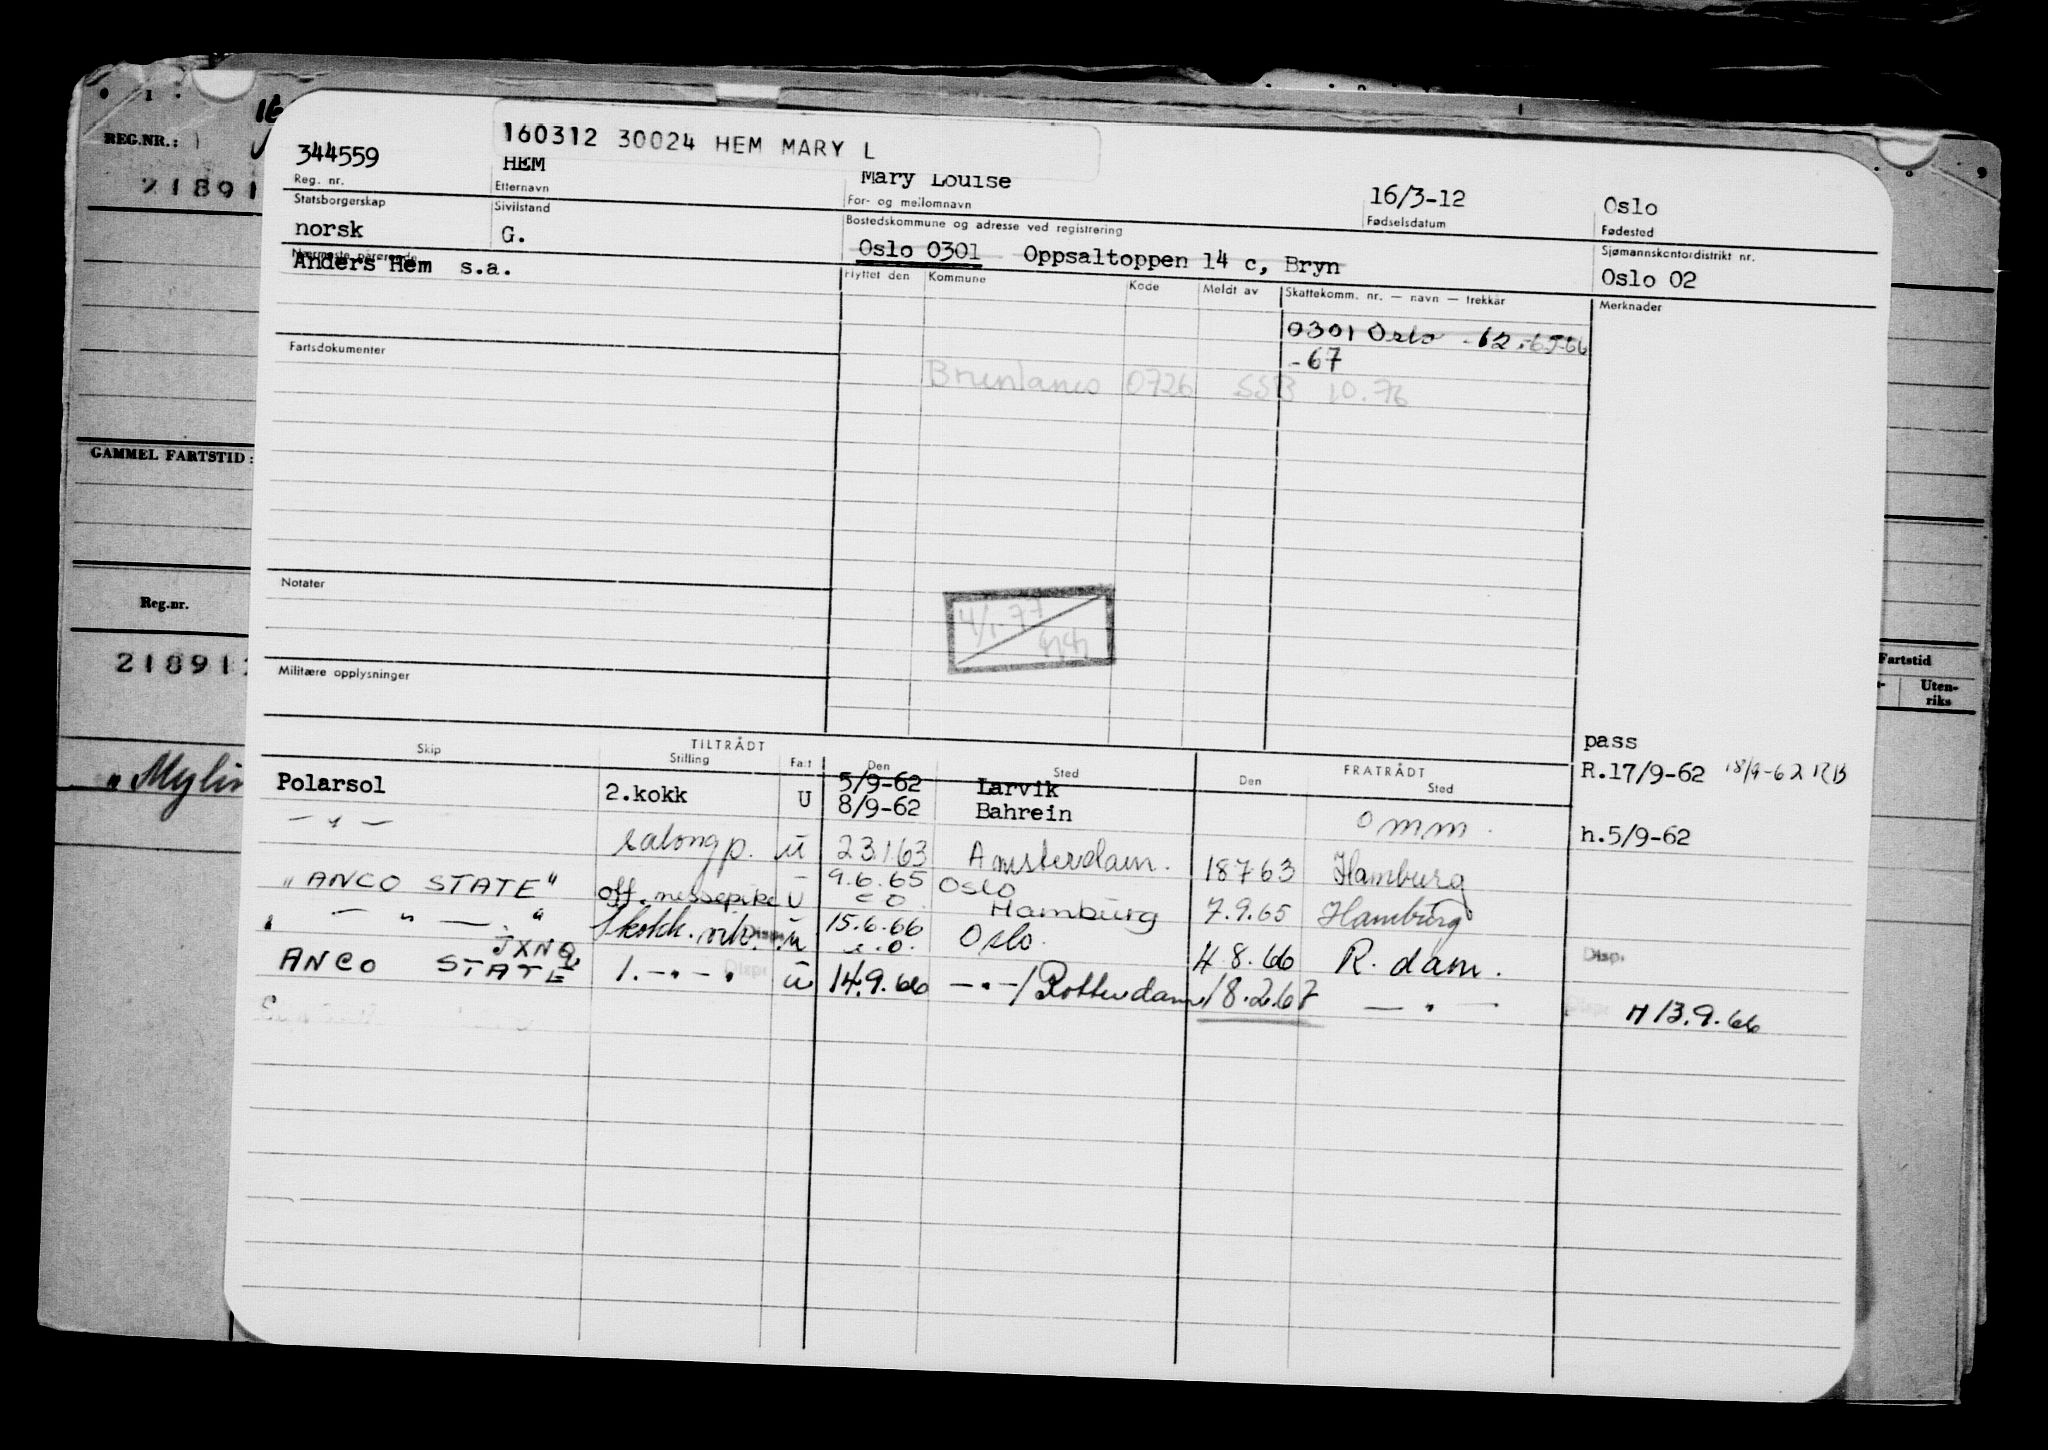 REG.NR.:
21891
GAMMEL FARTSTID:
Reg.nr.
21891
Fartstid
Uten-
riks
160312 30024 HEM MARY L
344559 HEM Mary Louise 16/3-12 Oslo
Reg. nr. Etternavn For- og mellomnavn Fødselsdatum Fødested
Statsborgerskap Sivilstand Bostedskommune og adresse ved registrering Sjømannskontordistrikt nr.
norsk G. Oslo 0301 Oppsaltoppen 14 c, Bryn Oslo 02
Nærmeste pårørende
Anders Hem s.a.
Flyttet den Kommune Kode Meldt av Skattekomm. nr. — navn — trekkår Merknader
0301 Oslo -62.-65-66
-67
Fartsdokumenter
Brunlanes 0726 SSB 10.76
Notater
4/1-77
Militære opplysninger
pass
TILTRÅDT FRATRÅDT
Skip Stilling Fart Den Sted Den Sted
R.17/9-62 18/9-62 RB
Polarsol 2.kokk U 5/9-62 Larvik
8/9-62 Bahrein omm.
h.5/9-62
— " — salongp. u 23.1.63 Amsterdam. 18763 Hamburg
"ANCO STATE" off.messepike u 9.6.65 Oslo
Hamburg 7.9.65 Hamburg
— " — " u 15.6.66 Oslo. 4.8.66 R.dam. Disp.
JXNQ
ANCO STATE 1. — " — " u 14.9.66 — " — / Rotterdam 18.2.67 — " — H 13.9.66